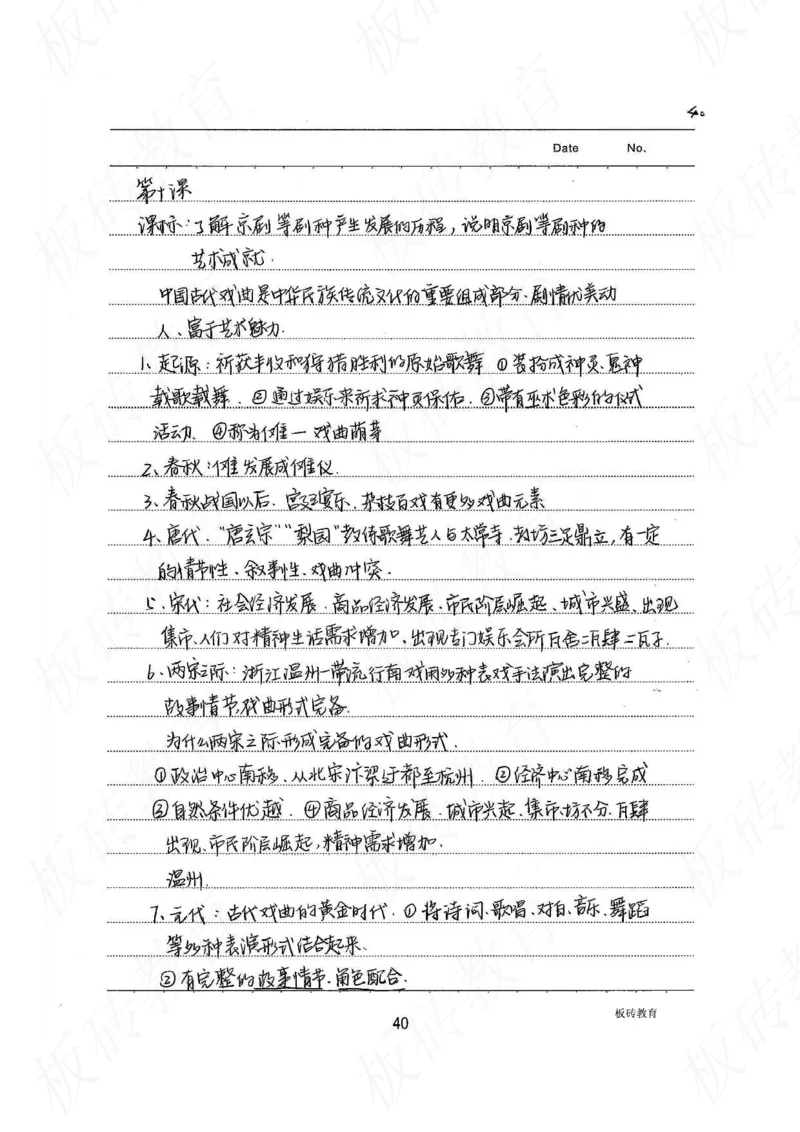 40
Date No.
第十课
课标：了解京剧等剧种产生发展的历程，说明京剧等剧种的
艺术成就.
中国古代戏曲是中华民族传统文化的重要组成部分、剧情优美动
人、富于艺术魅力.
1、起源：祈获丰收和狩猎胜利的原始歌舞 ①装扮成神灵、鬼神
载歌载舞. ②通过娱乐来祈求神灵保佑. ③带有巫术色彩的仪式
活动. ④称为傩一戏曲萌芽
2、春秋：傩发展成傩仪.
3、春秋战国以后. 宫廷宴乐、杂技百戏有更多戏曲元素
4、唐代. "唐玄宗""梨园"教侍歌舞艺人与太常寺. 教坊三足鼎立，有一定
的情节性、叙事性、戏曲冲突.
5、宋代：社会经济发展. 商品经济发展、市民阶层崛起、城市兴盛、出现
集市、人们对精神生活需求增加、出现专门娱乐会所瓦舍=瓦肆=瓦子.
6、两宋之际：浙江温州一带流行南戏用多种表戏手法演出完整的
故事情节戏曲形式完备.
为什么两宋之际形成完备的戏曲形式.
①政治中心南移、从北宋汴梁迁都至杭州. ②经济中心南移完成
③自然条件优越. ④商品经济发展. 城市兴起、集市、坊不分. 瓦肆
出现、市民阶层崛起，精神需求增加.
温州.
7、元代：古代戏曲的黄金时代. ①将诗词、歌唱、对白、音乐、舞蹈
等多种表演形式结合起来.
②有完整的故事情节、角色配合.
40
板砖教育